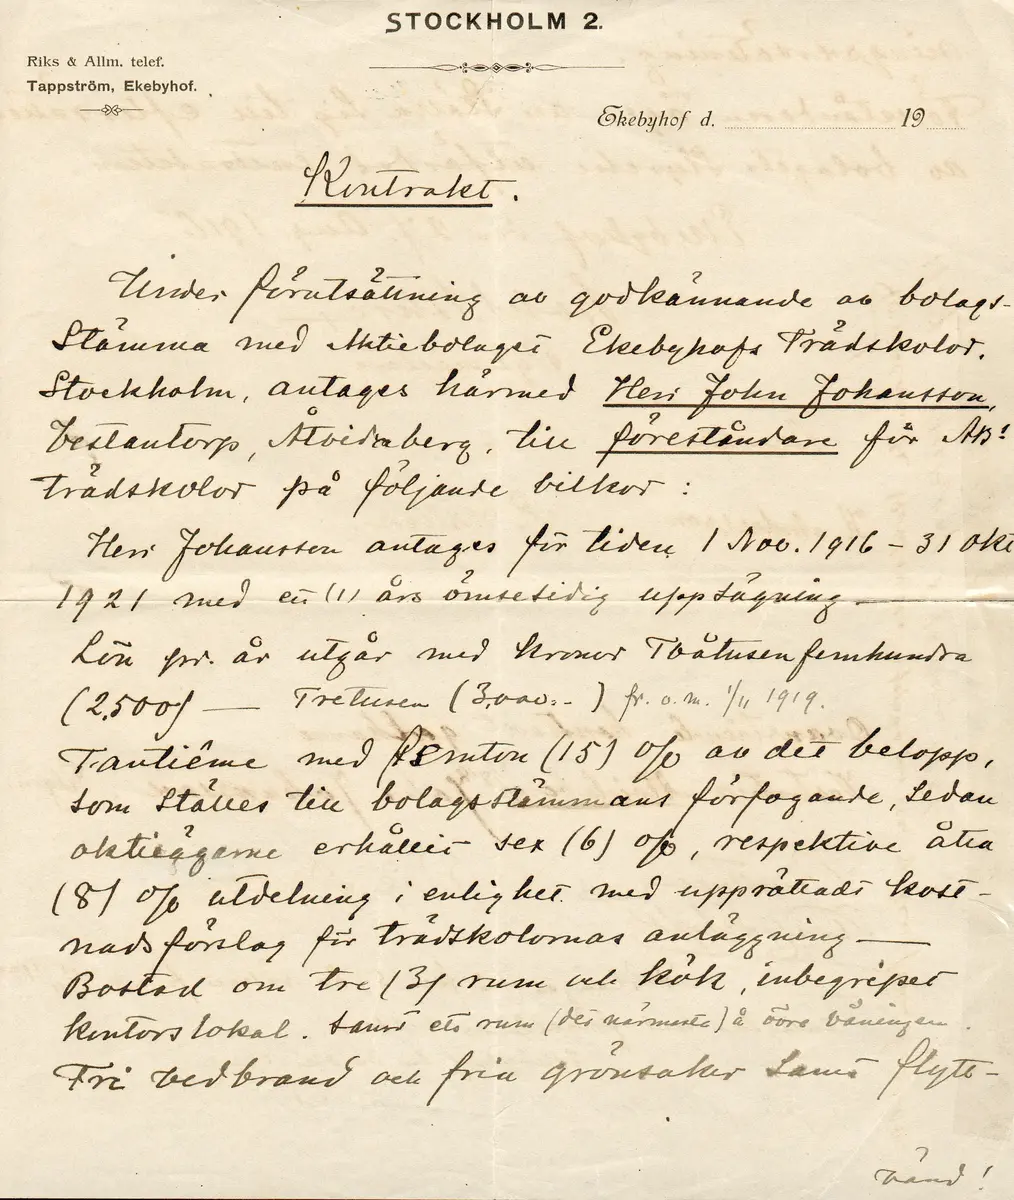 STOCKHOLM 2.
Riks & Allm. telef.
Tappström, Ekebyhof.
Ekebyhof d. 19
Kontrakt.
Under förutsättning av godkännande av bolags-
stämma med Aktiebolaget Ekebyhofs Trädskolor.
Stockholm, antages härmed Herr John Johansson,
Vestantorp, Åtvidaberg, till föreståndare för AB:
trädskolor på följande vilkor:
Herr Johansson antages för tiden 1 Nov. 1916 – 31 okt
1921 med ett (1) års ömsesidig uppsägning —
Lön pr. år utgår med kronor Tvåtusenfemhundra
(2,500) — Tretusen (3,000:-) fr. o. m. 1/11 1919.
Tantième med femton (15) o/o av det belopp,
som ställes till bolagsstämmans förfogande, sedan
aktieägarne erhållit sex (6) o/o, respektive åtta
(8) o/o utdelning i enlighet med upprättadt kost-
nadsförslag för trädskolornas anläggning —
Bostad om tre (3) rum och kök, inbegripet
kontorslokal. samt ett rum (det närmaste) å övre våningen.
Fri vedbrand och fria grönsaker samt flytt-
vänd!